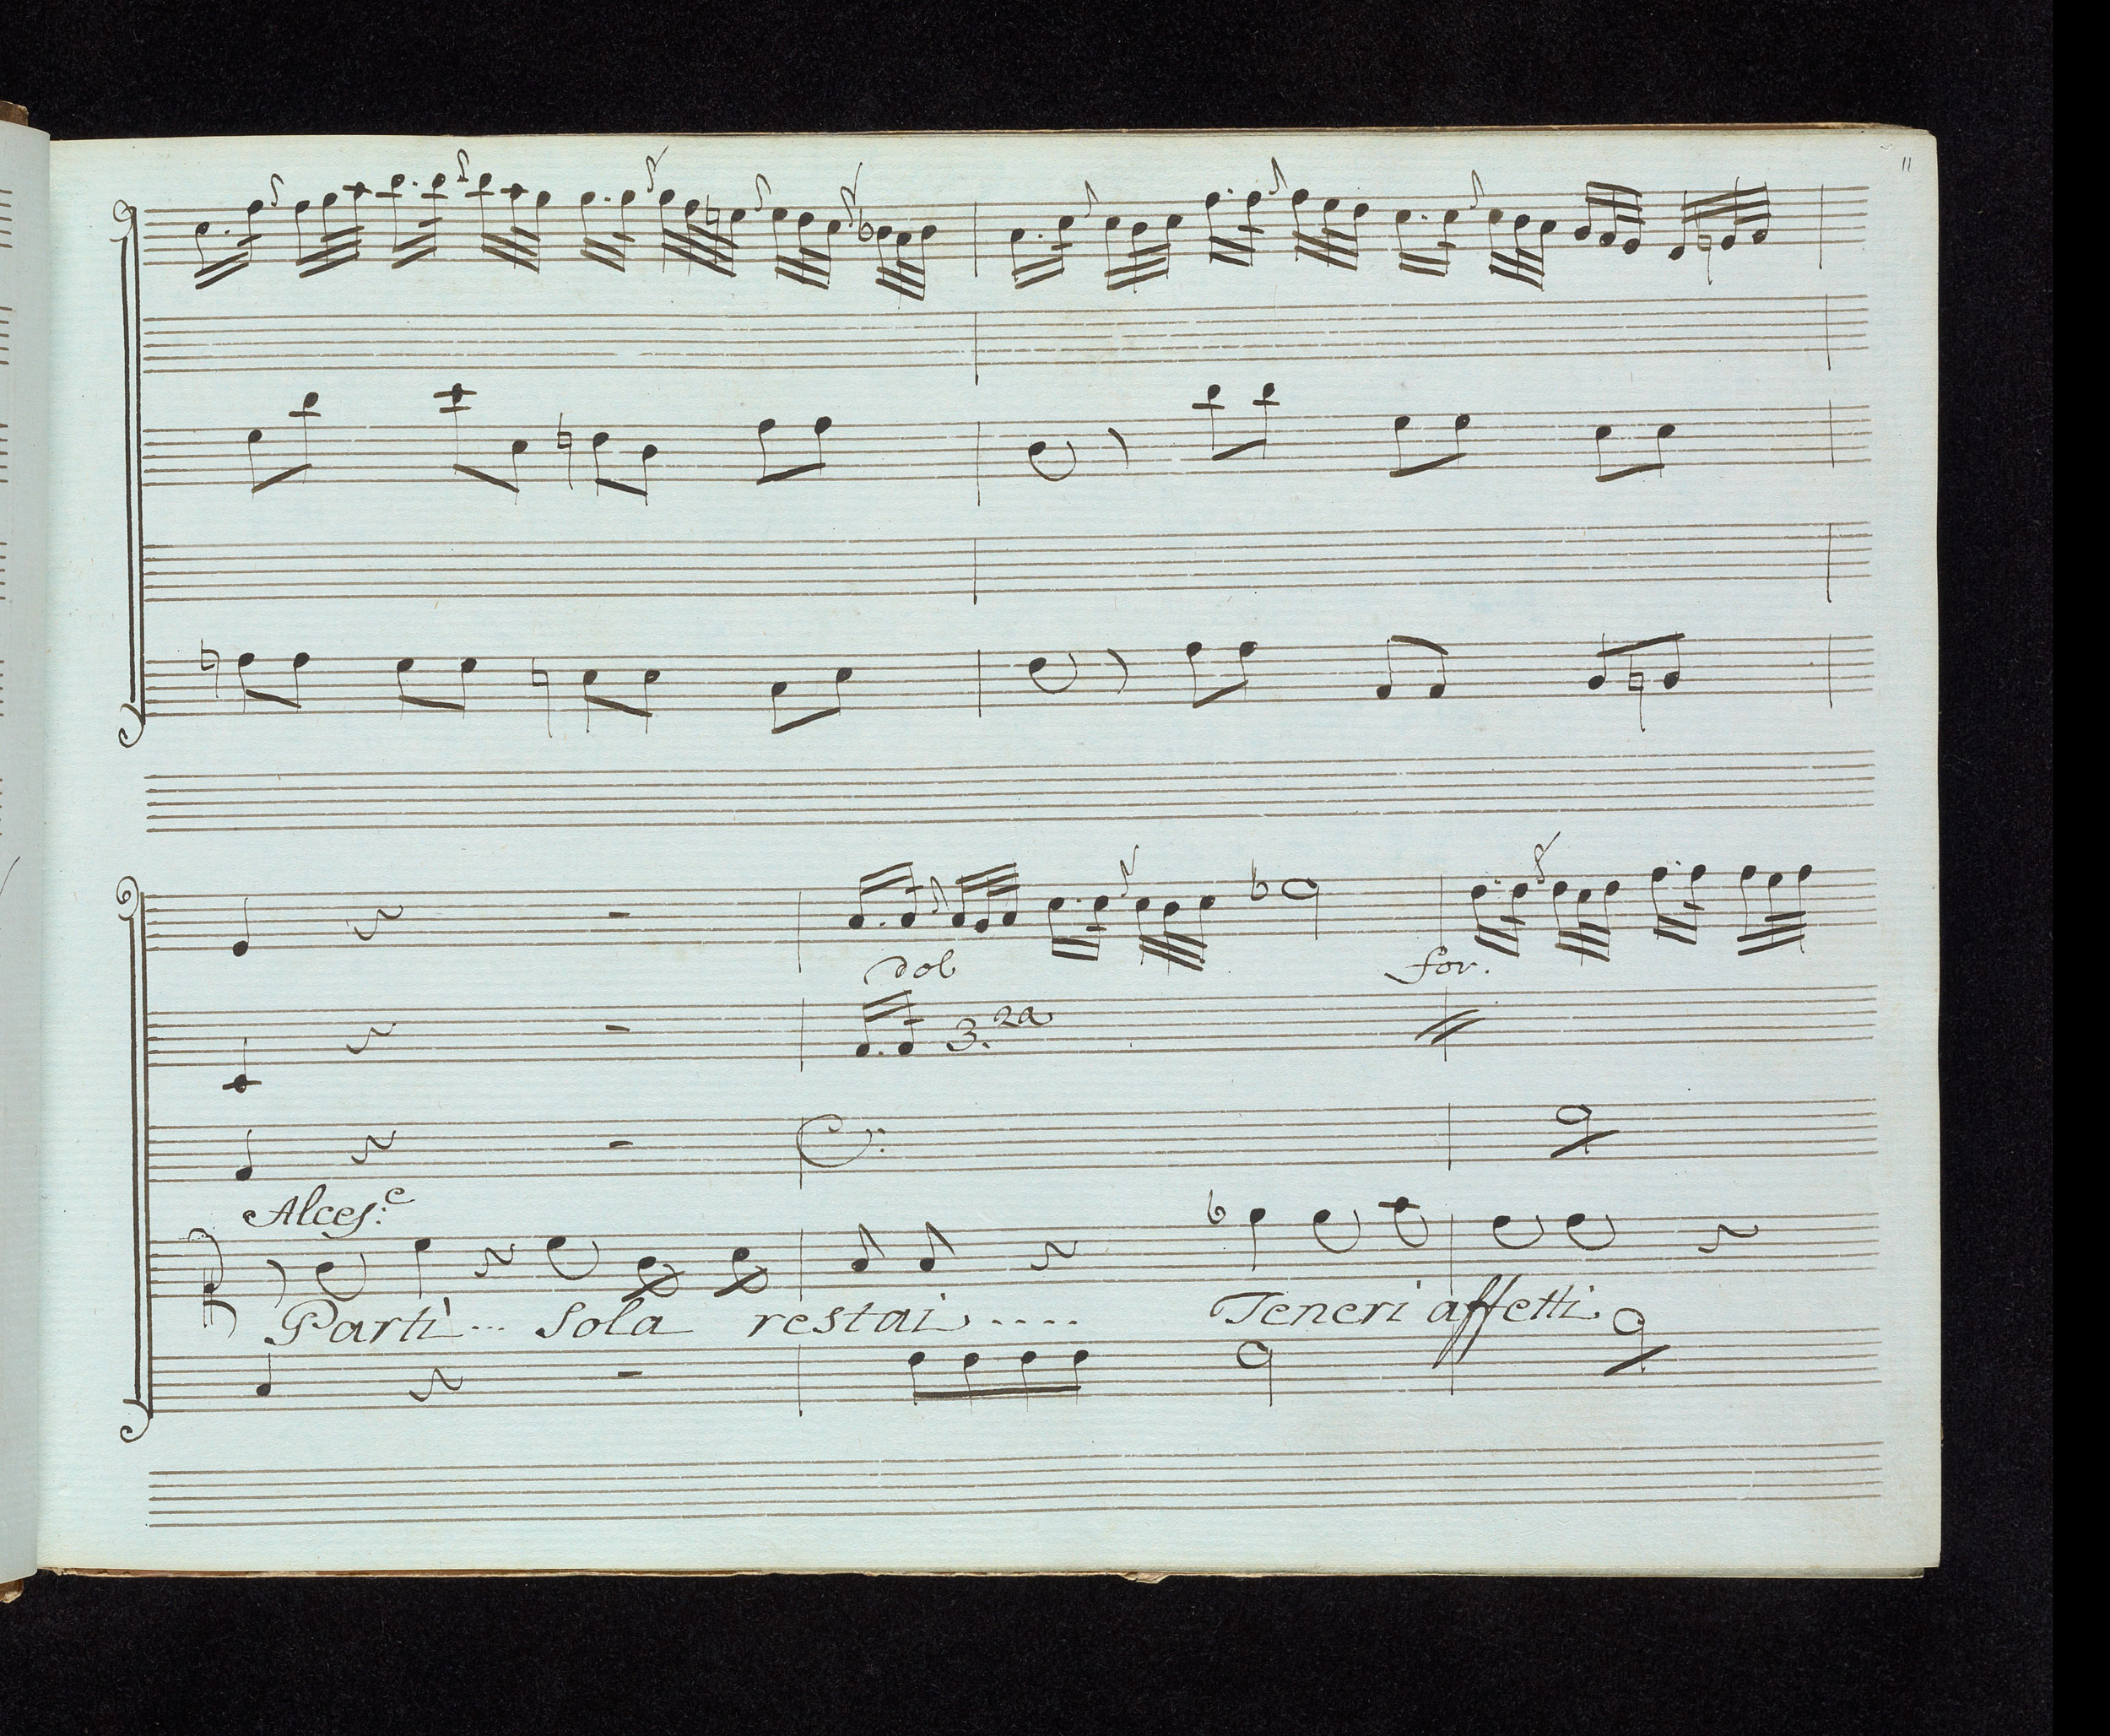 11
dol for.
3.za
Alces.e
Partì... Sola restai..... Teneri affetti